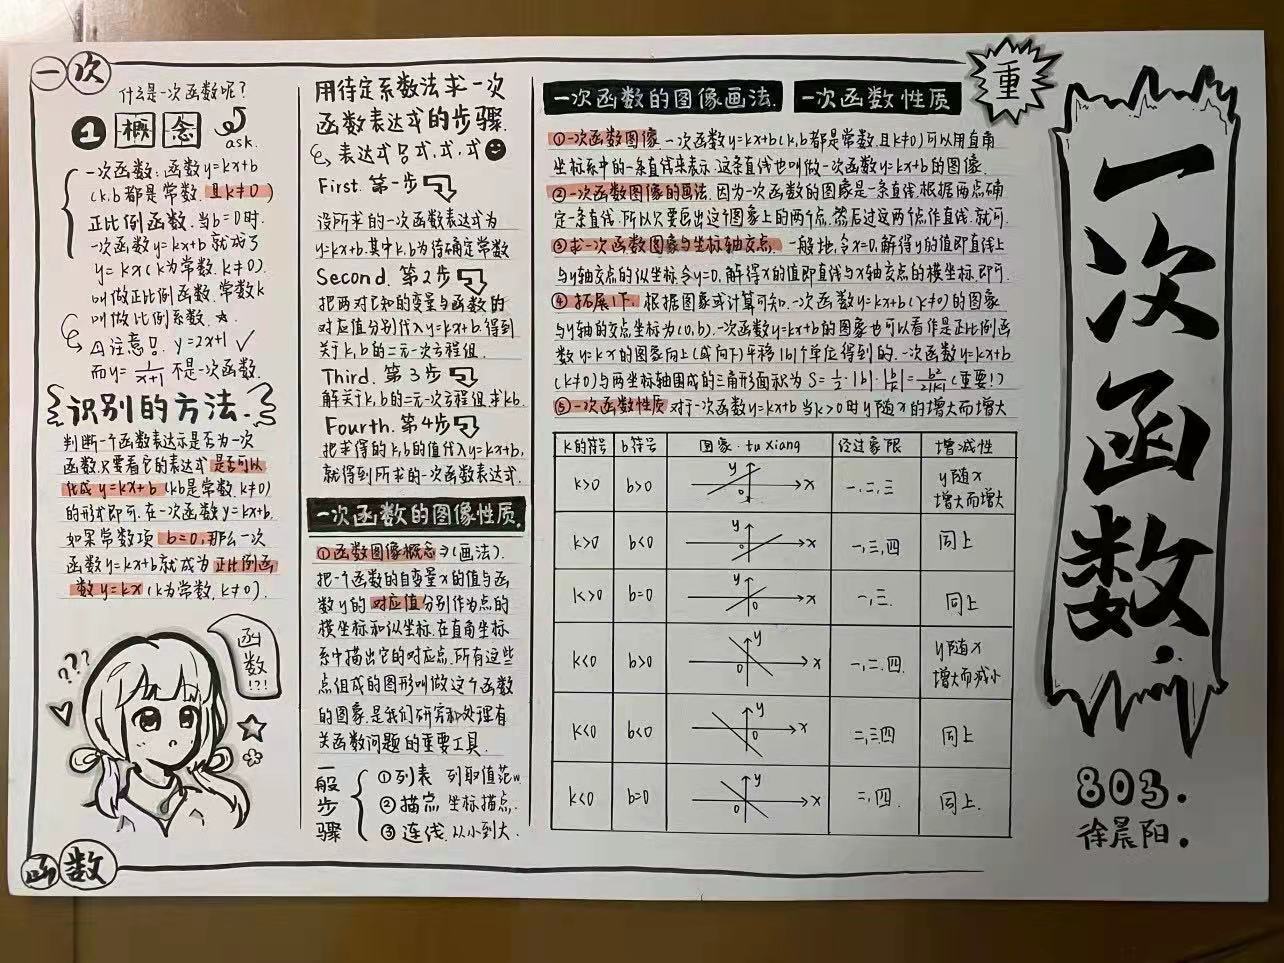 一次
什么是一次函数呢？
1 概念
ask.
一次函数：函数y=kx+b
(k.b都是常数.且k≠0)
正比例函数.当b=0时.
一次函数y=kx+b就成了
y=kx(k为常数.k≠0).
叫做正比例函数.常数k
叫做比例系数.
注意!. y=2x+1 ✓
而y=1/(x+1)不是一次函数.
识别的方法.
判断一个函数表达示是否为一次
函数.只要看它的表达式是否可以
化成y=kx+b(kb是常数.k≠0)
的形式即可.在一次函数y=kx+b.
如果常数项b=0,那么一次
函数y=kx+b就成为正比例函
数y=kx(k为常数,k≠0).
???
函数!?!
函数
用待定系数法求一次
函数表达式的步骤.
表达式!式.式.式
First.第一步
设所求的一次函数表达式为
y=kx+b.其中k.b为待确定常数
Second.第2步
把两对已知的变量与函数的
对应值分别代入y=kx+b.得到
关于k,b的二元一次方程组.
Third.第3步
解关于k,b的二元一次方程组.求kb.
Fourth.第4步
把求得的k,b的值代入y=kx+b,
就得到所求的一次函数表达式.
一次函数的图像性质.
①函数图像概念(画法).
把一个函数的自变量x的值与函
数y的对应值分别作为点的
横坐标和纵坐标.在直角坐标
系中描出它的对应点.所有这些
点组成的图形叫做这个函数
的图象.是我们研究和处理有
关函数问题的重要工具.
一般步骤
①列表 列取值范w.
②描点.坐标描点.
③连线.从小到大.
一次函数的图像画法.
一次函数性质
重
①一次函数图像 一次函数y=kx+b(k,b都是常数.且k≠0)可以用直角
坐标系中的一条直线来表示.这条直线也叫做一次函数y=kx+b的图像.
②一次函数图像的画法.因为一次函数的图象是一条直线.根据两点确
定一条直线.所以只要画出这个图象上的两个点.然后过这两个点作直线.就可.
③求一次函数图象与坐标轴交点,一般地,令x=0,解得y的值即直线上
与y轴交点的纵坐标.令y=0,解得x的值即直线与x轴交点的横坐标.即可.
④拓展1下.根据图象或计算可知.一次函数y=kx+b(k≠0)的图象
与y轴的交点坐标为(0,b).一次函数y=kx+b的图象也可以看作是正比例函
数y=kx的图象向上(或向下)平移|b|个单位得到的.一次函数y=kx+b
(k≠0)与两坐标轴围成的三角形面积为S=1/2·|b|·|b/k|=b²/2|k|(重要!)
⑤一次函数性质 对于一次函数y=kx+b 当k>0时y随x的增大而增大
k的符号 b符号 图象·tu xiang 经过象限 增减性
k>0 b>0 y x 0 一,二,三 y随x增大而增大
k>0 b<0 y x 0 一,三,四 同上
k>0 b=0 y x 0 一,三. 同上
k<0 b>0 y x 0 一,二.四 y随x增大而减小
k<0 b<0 y x 0 二,三,四 同上
k<0 b=0 y x 0 二,四. 同上.
一次函数.
803.
徐晨阳.